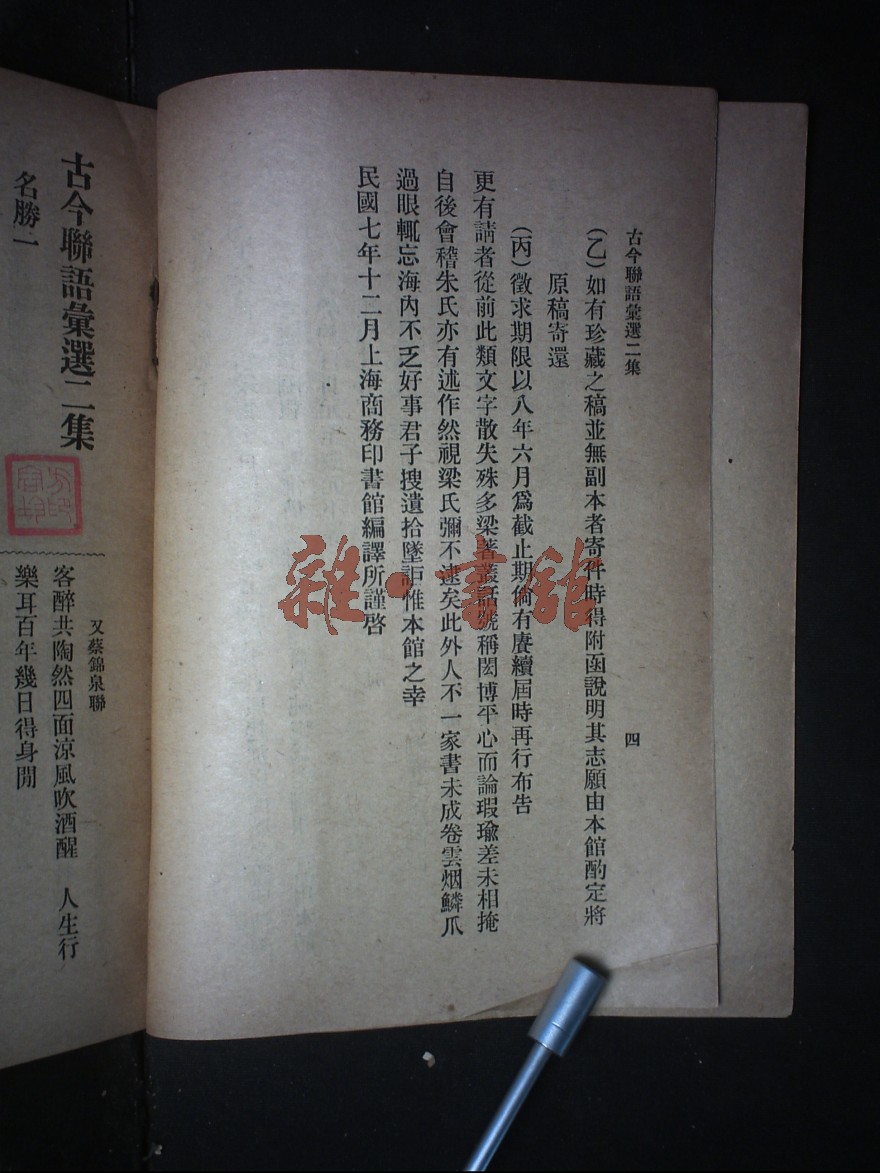 古今聯語彙選二集
四
(乙)如有珍藏之稿並無副本者寄件時得附函說明其志願由本館酌定將
原稿寄還
(丙)徵求期限以八年六月爲截止期倘有賡續屆時再行布告
更有請者從前此類文字散失殊多梁著叢話號稱閎博平心而論瑕瑜差未相掩
自後會稽朱氏亦有述作然視梁氏彌不逮矣此外人不一家書未成卷雲烟鱗爪
過眼輒忘海內不乏好事君子搜遺拾墜詎惟本館之幸
民國七年十二月上海商務印書館編譯所謹啓
古今聯語彙選二集
名勝一
又蔡錦泉聯
客醉共陶然四面涼風吹酒醒 人生行
樂耳百年幾日得身閒
雜·書館